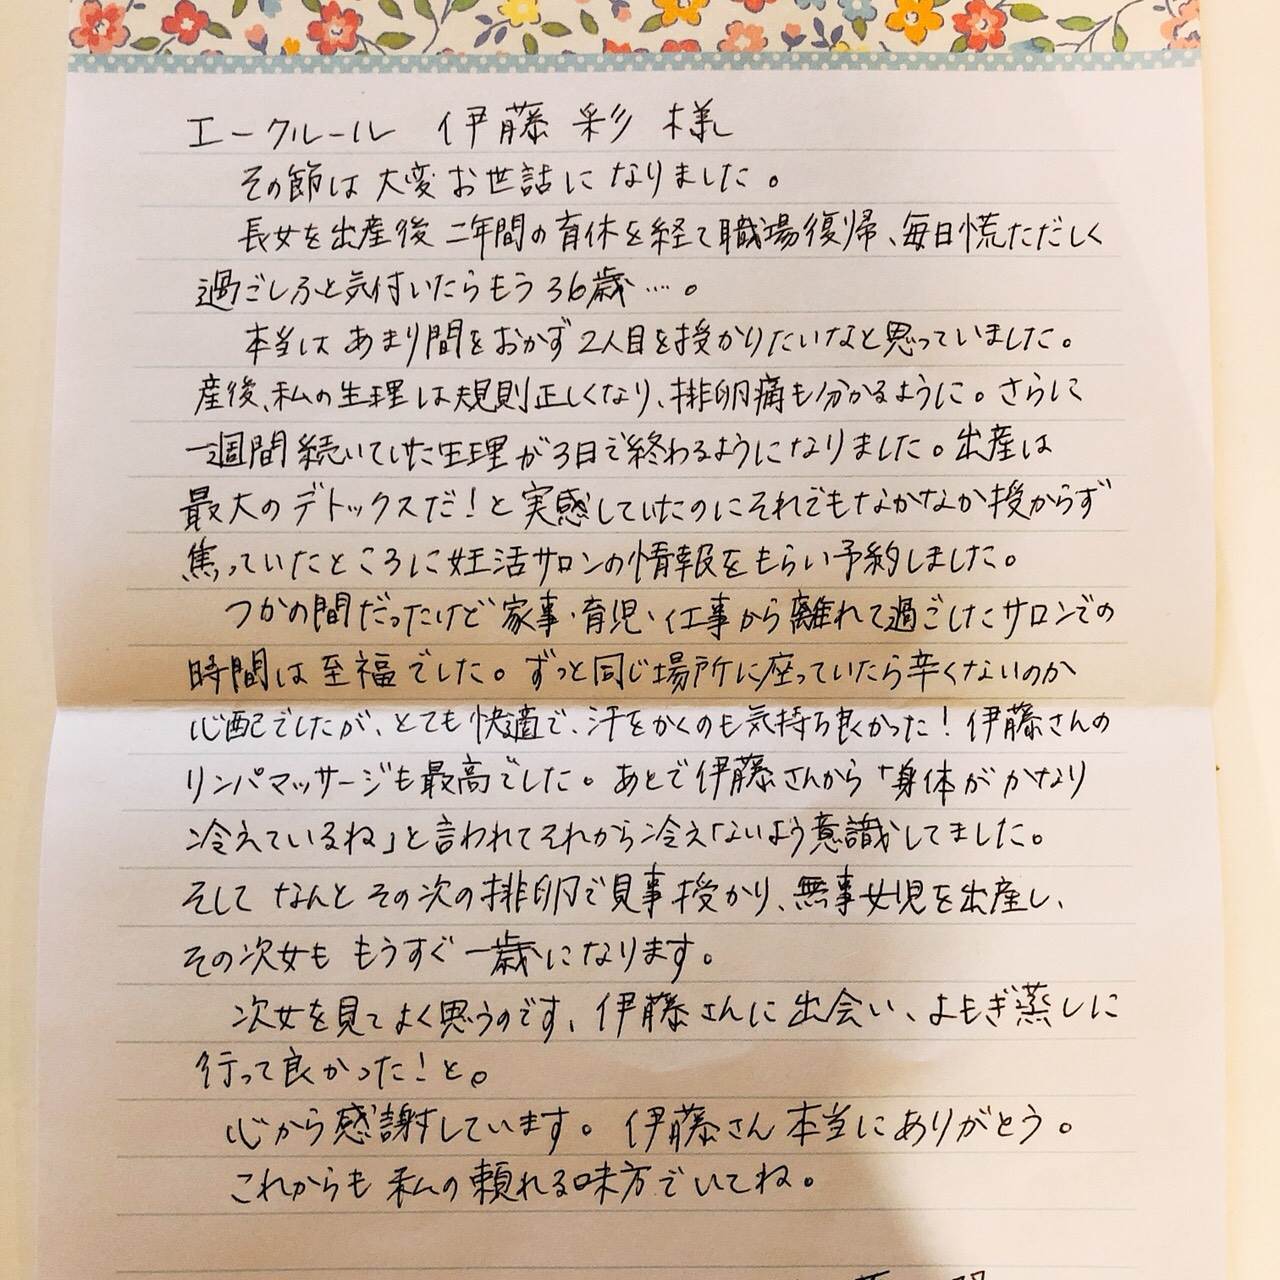 エークルール 伊藤 彩 様
その節は大変お世話になりました。
長女を出産後二年間の育休を経て職場復帰、毎日慌ただしく
過ごしふと気付いたらもう36歳…。
本当はあまり間をおかず2人目を授かりたいなと思っていました。
産後、私の生理は規則正しくなり、排卵痛も分かるように。さらに
一週間続いていた生理が3日で終わるようになりました。出産は
最大のデトックスだ!と実感していたのにそれでもなかなか授からず
焦っていたところに妊活サロンの情報をもらい予約しました。
つかの間だったけど家事・育児・仕事から離れて過ごしたサロンでの
時間は至福でした。ずっと同じ場所に座っていたら辛くないのか
心配でしたが、とても快適で、汗をかくのも気持ち良かった!伊藤さんの
リンパマッサージも最高でした。あとで伊藤さんから「身体がかなり
冷えているね」と言われてそれから冷えないよう意識してました。
そしてなんとその次の排卵で見事授かり、無事女児を出産し、
その次女ももうすぐ一歳になります。
次女を見てよく思うのです、伊藤さんに出会い、よもぎ蒸しに
行って良かったこと。
心から感謝しています。伊藤さん本当にありがとう。
これからも私の頼れる味方でいてね。